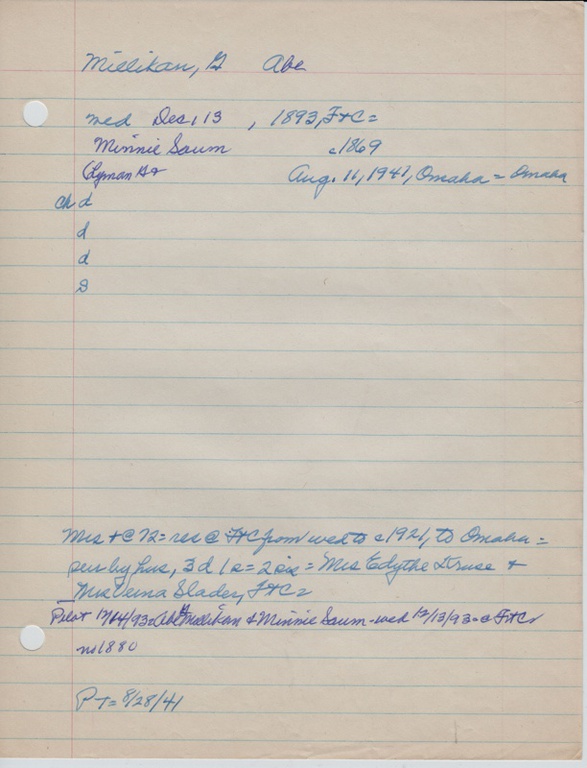 Millikan, G Abe
wed Dec, 13 , 1893, F+C=
Minnie Saum c1869
(Lyman G+ Aug. 11, 1941, Omaha = Omaha
Ch d
d
d
S
Mrs + @ 72 = res @ F+C from wed to c1921, to Omaha =
sur by hus, 3 d 1 s = 2 sis = Mrs Edythe Kruse +
Mrs Verna Slader, F+C=
Pilot 12/14/93 = Abe G Millikan + Minnie Saum - wed 12/13/93 = @ F+C
no 1880
PT = 8/28/41